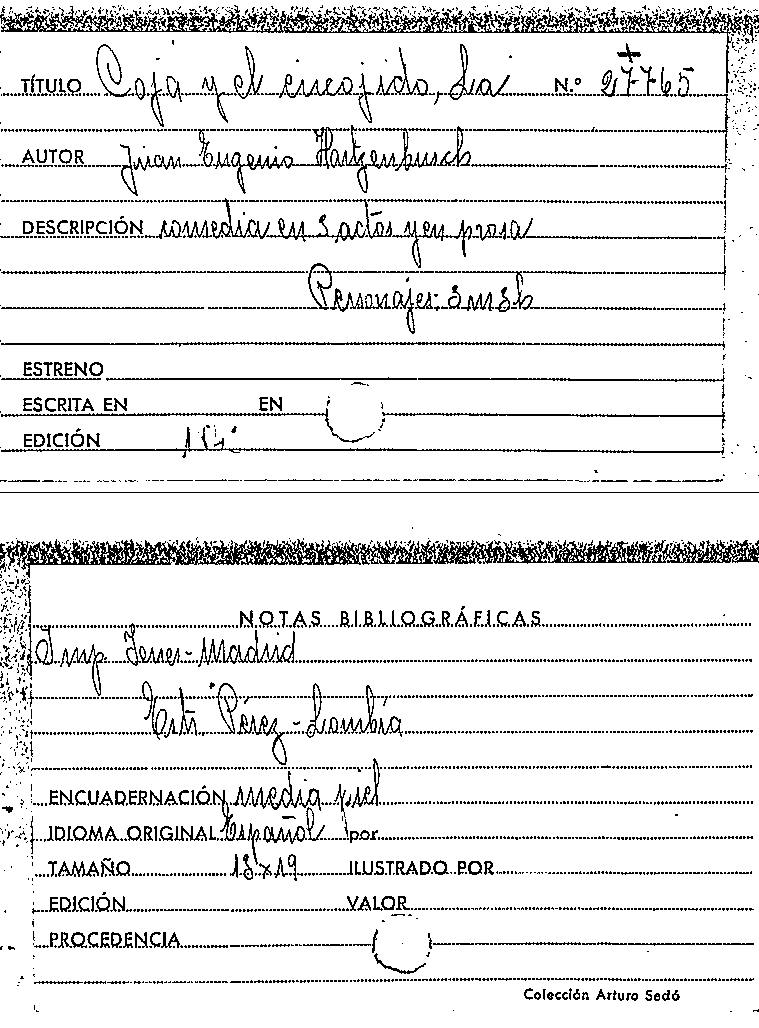 TÍTULO Coja y el encojido, La N.º 27765
AUTOR Juan Eugenio Hartzenbusch
DESCRIPCIÓN comedia en 3 actos y en prosa
Personajes: 3 m 3 h
ESTRENO
ESCRITA EN EN
EDICIÓN
NOTAS BIBLIOGRÁFICAS
Imp. Madrid
Pérez - Lombía
ENCUADERNACIÓN media piel
IDIOMA ORIGINAL Español por
TAMAÑO 13 x 19 ILUSTRADO POR
EDICIÓN VALOR
PROCEDENCIA
Colección Arturo Sedó